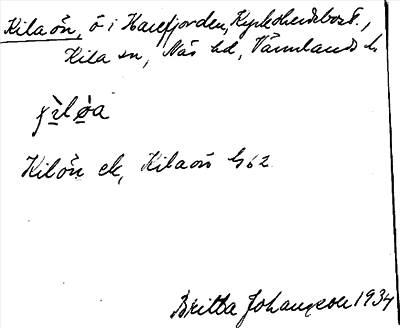 Kilaön, ö i Harefjorden, Kyrkoherdebost.,
Kila sn, Näs hd, Värmlands l.
Kilön ek, Kilaön G 62
Britta Johansson 1934